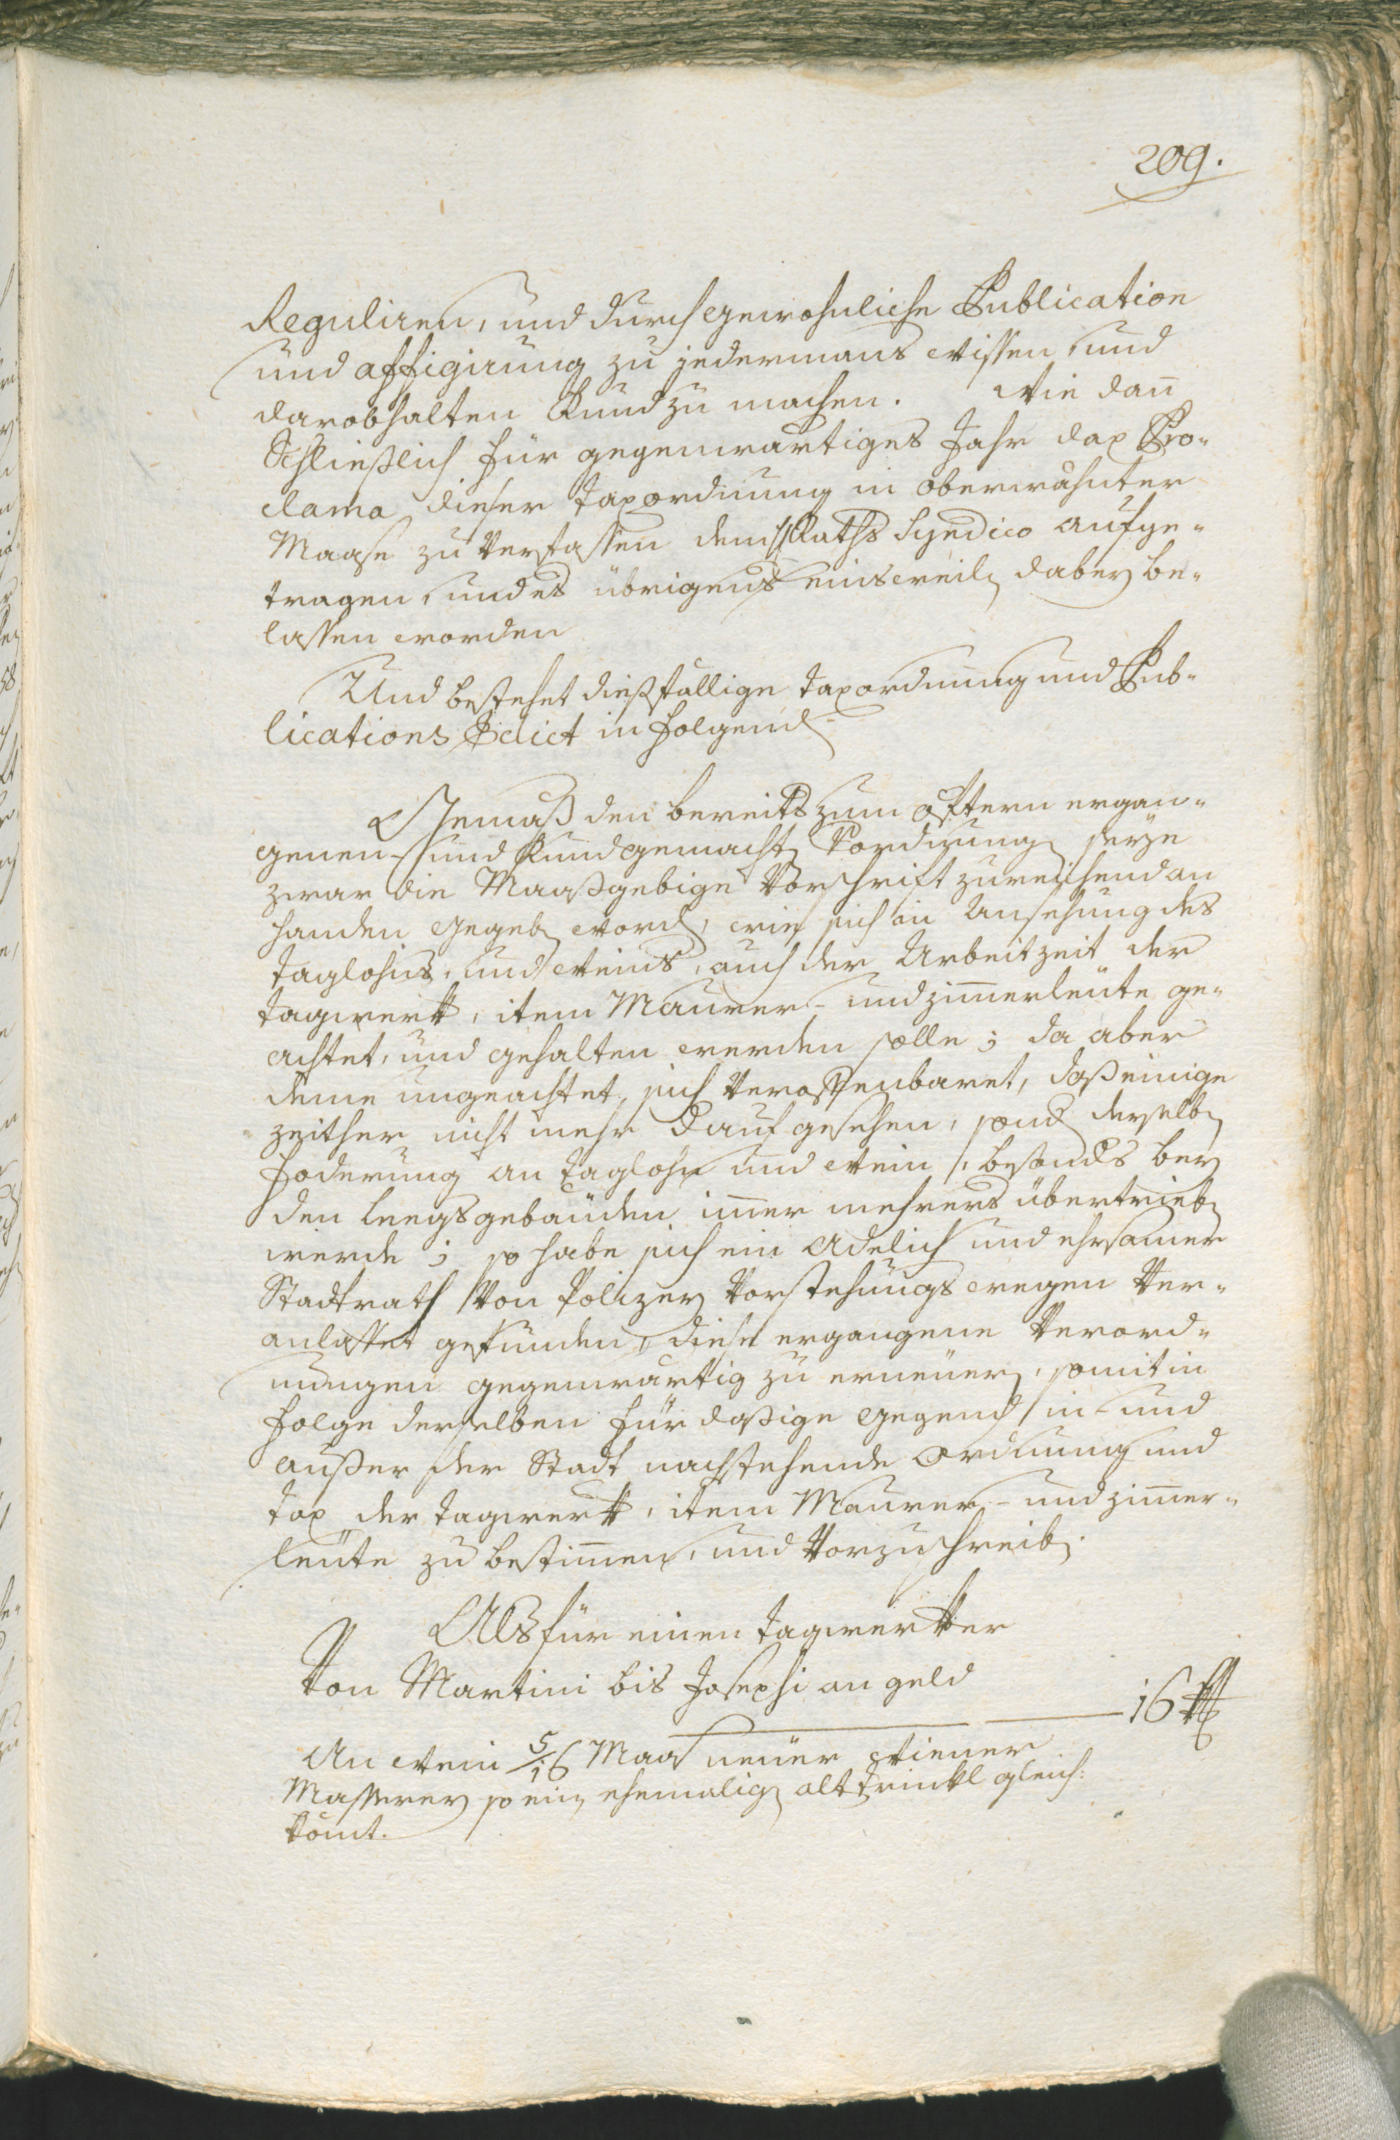 209.
Reguliren, und durch gewohnliche Publication
und affigirung zu jedermans wissen, und
darobhalten Kund zu machen. Wie dan̅
Schließlich für gegenwärtiges Jahr das Pro-
clama dieser taxordnung in oberwähnter
Maase zu Verfassen dem Raths Syndico aufge-
tragen, und es übrigens einsweil dabey be-
lassen worden
Und bestehet dießfällige taxordnung und Pub-
lications Edict in folgend
Gemäß den bereits zum öftern ergan-
genen- und Kundgemacht Vordnung seye
zwar die Maaßgebige Vorschrift zureichend an
handen gegeb word, wie sich in Ansehung des
taglohns, und weins, auch der Arbeitzeit der
tagwerk, item Maurer- und zim̅erleüte ge-
achtet, und gehalten werden solle; da aber
deme ungeachtet sich Veroffenbaret, daß einige
zeither nicht mehr darauf gesehen, sond derselb
foderung an taglohn und wein, besonds bey
den Leegsgebäuden im̅er mehrers übertrieb
werde; so habe sich ein Adelich und ehrsamer
Stadtrath Von Polizey Vorstehungs wegen Ver-
anlasset gefunden, diese ergangene Verord-
nungen gegenwärtig zu erneüern, somit in
folge derselben für dasige gegend in- und
ausser der Stadt nachstehende ordnung und
tax der tagwerk, item Maurer- und zim̅er-
leüte zu bestim̅en, und Vorzuschreib.
Als für einen tagwerker
Von Martini bis Josephi an geld
16 x
An wein 5/16 Maas neüer Wiener
Masserey so ein ehemalig alt trinkl gleich:
kom̅t.